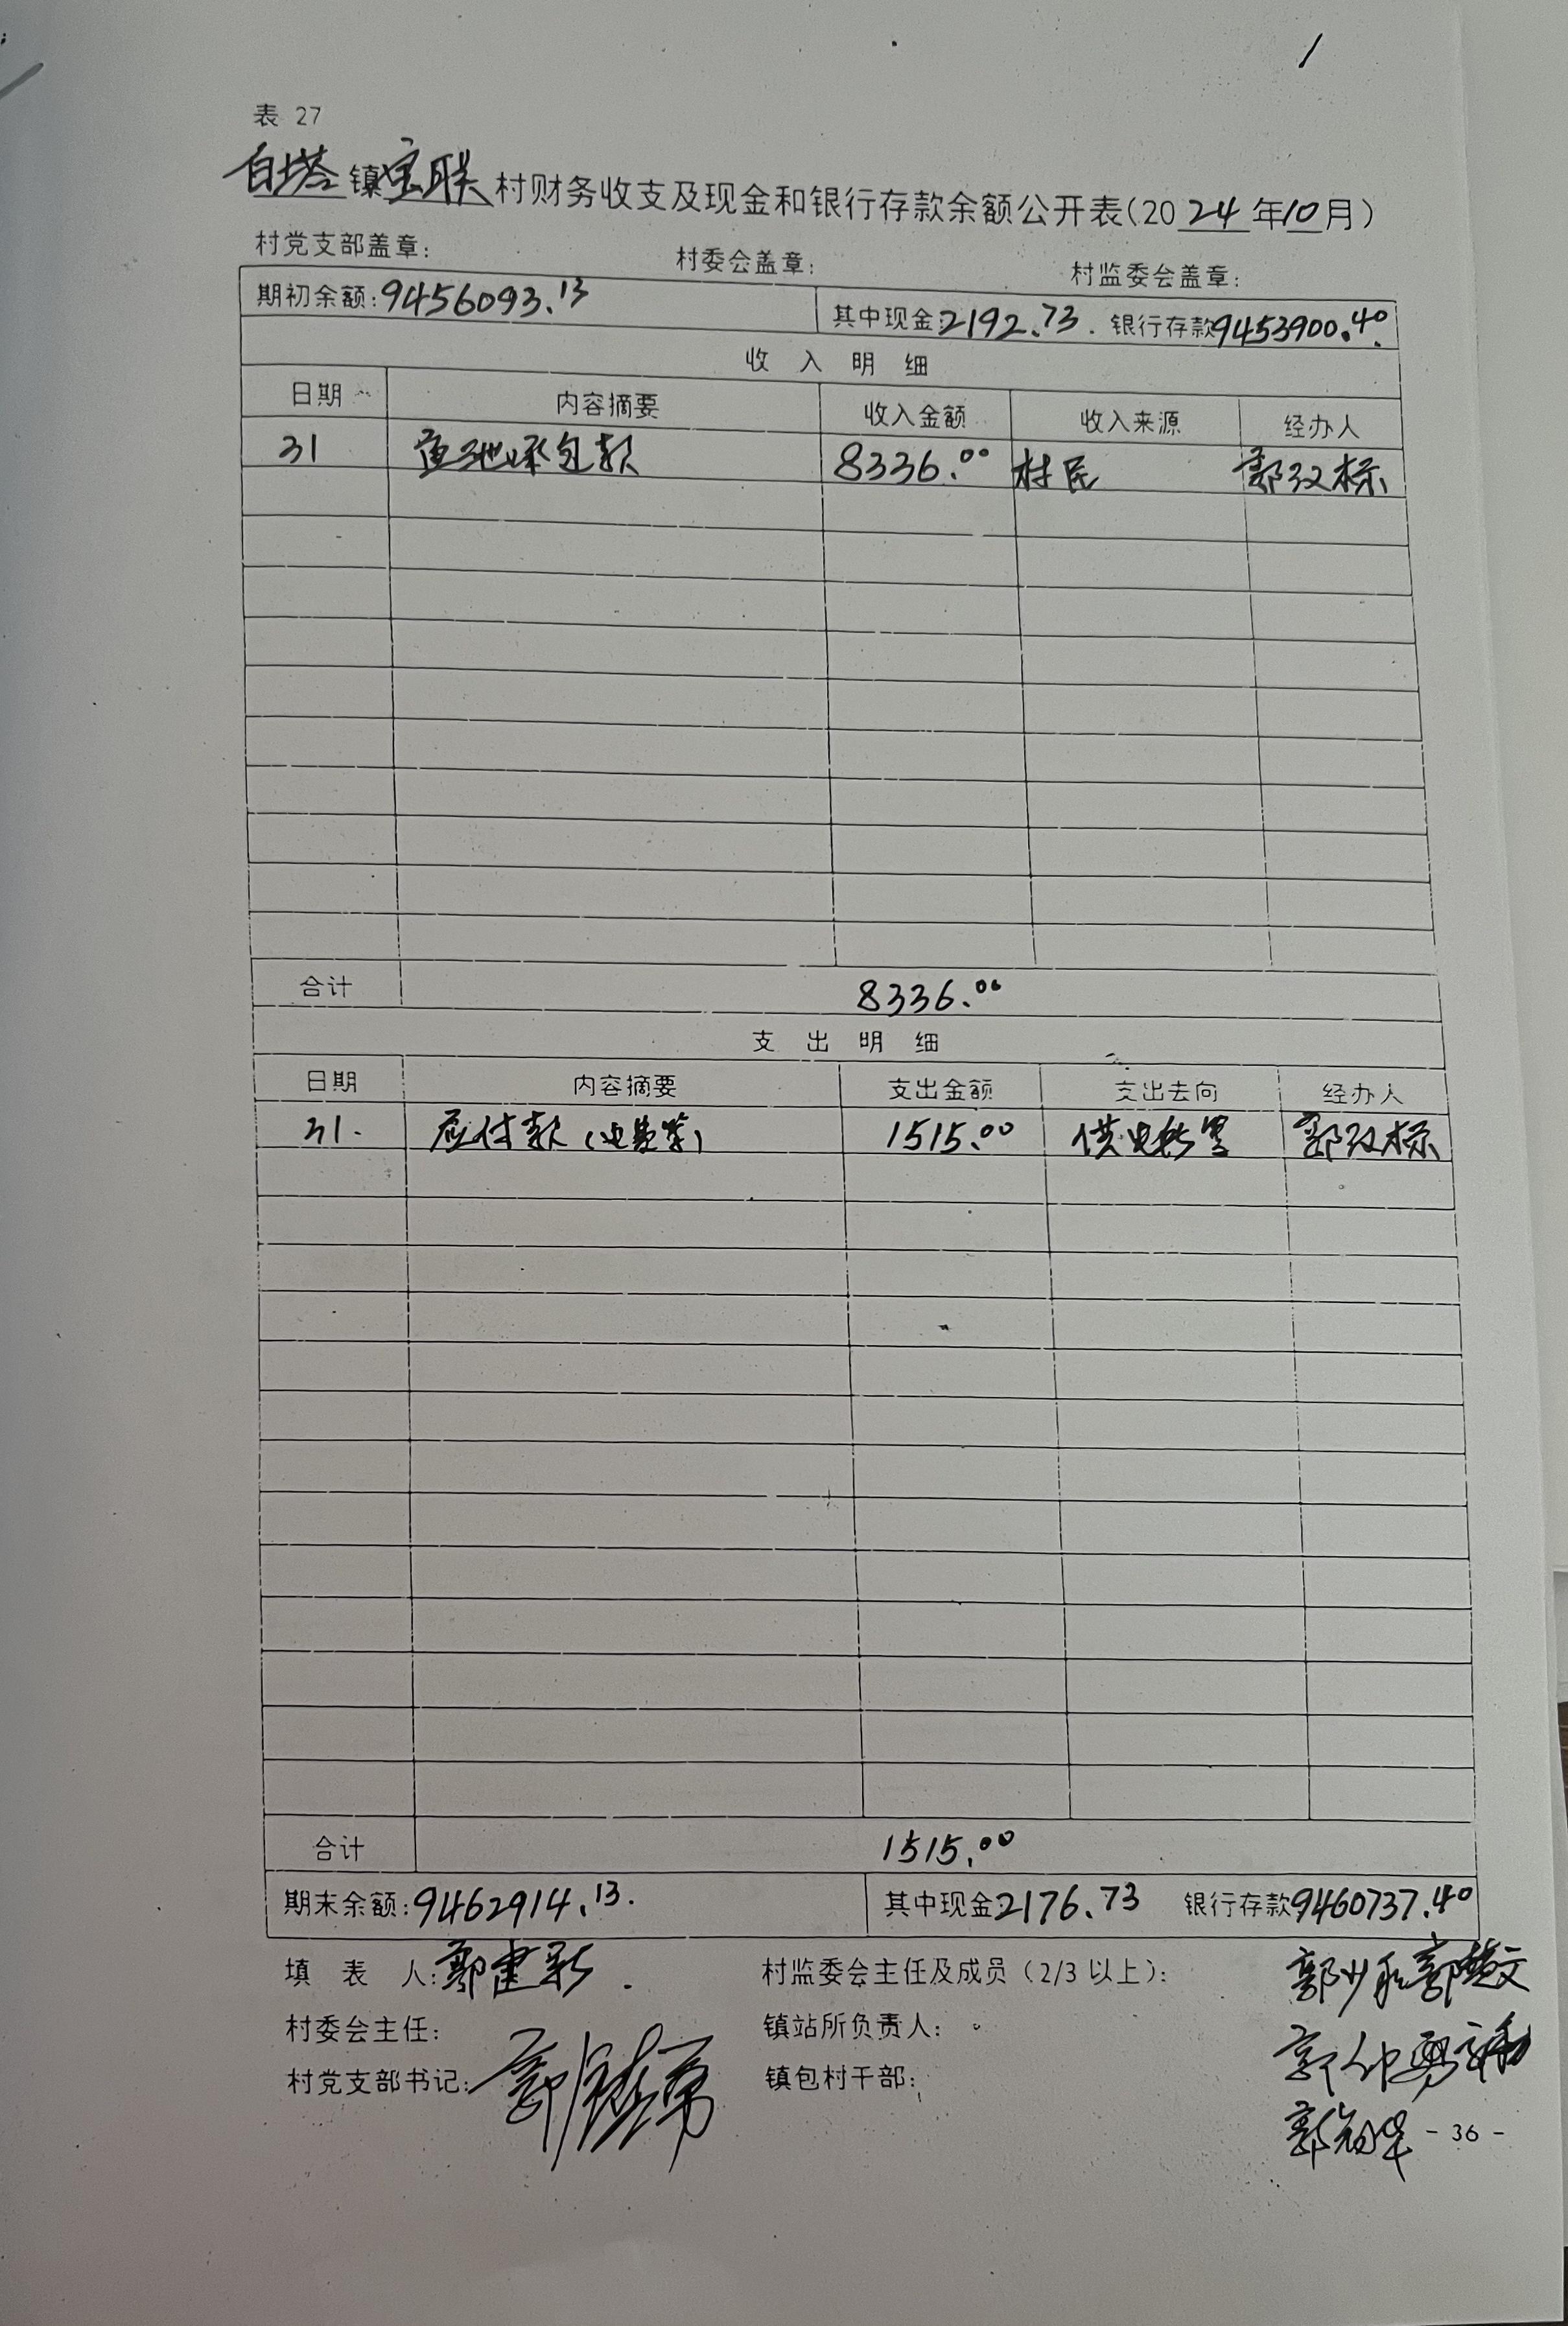 表 27
白塔镇宝联村财务收支及现金和银行存款余额公开表(2024年10月)
村党支部盖章: 村委会盖章: 村监委会盖章:
期初余额:9456093.13 其中现金2192.73. 银行存款9453900.40.
收 入 明 细
日期 内容摘要 收入金额 收入来源 经办人
31 鱼池承包款 8336.00 村民 郭汉标
合计 8336.00
支 出 明 细
日期 内容摘要 支出金额 支出去向 经办人
31. 应付款(电费等) 1515.00 供电所等 郭汉标
合计 1515.00
期末余额:9462914.13. 其中现金2176.73 银行存款9460737.40
填 表 人:郭建新. 村监委会主任及成员(2/3以上):
村委会主任: 镇站所负责人:
村党支部书记: 镇包村干部:
- 36 -